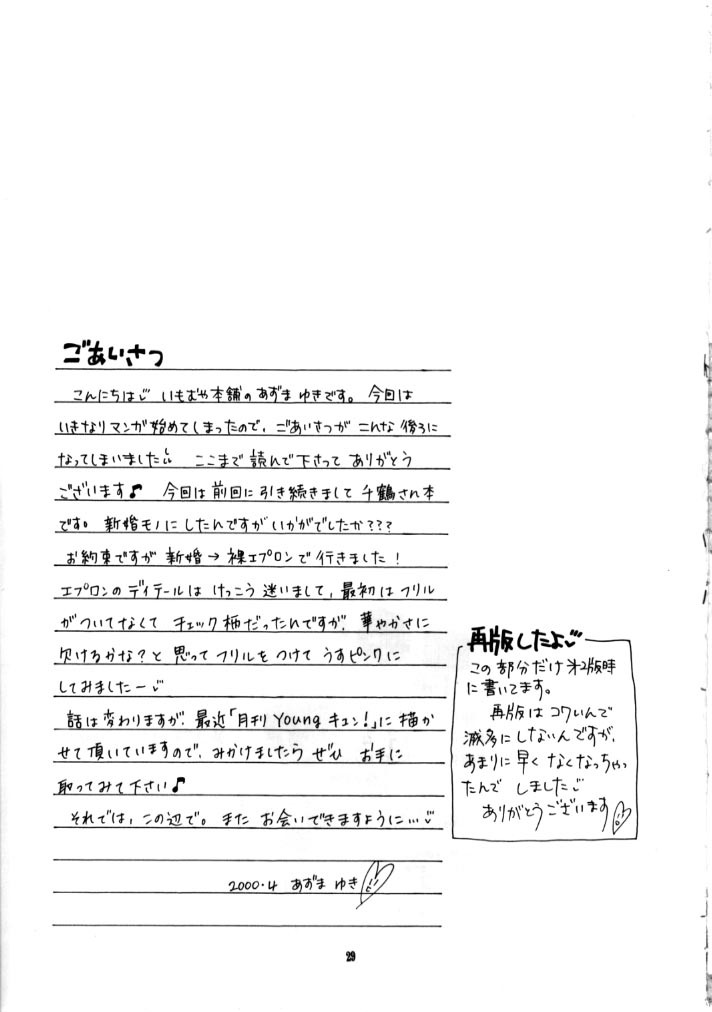 ごあいさつ
こんにちは♡ いもおや本舗のあずまゆきです。今回は
いきなりマンガ始めてしまったので、ごあいさつが こんな後ろに
なってしまいました ここまで読んで下さって ありがとう
ございます♪ 今回は前回に引き続きまして千鶴さん本
です。新婚モノにしたんですがいかがでしたか???
お約束ですが 新婚→裸エプロンで行きました!
エプロンのディテールは けっこう迷いまして、最初はフリル
がついてなくして チェック柄だったんですが、華やかさに
欠けるかな?と思ってフリルをつけて うすピンクに
してみましたー♡
話は変わりますが、最近「月刊Youngキュン!」に描か
せて頂いていますので、みかけましたら ぜひ お手に
取ってみて下さい♪
それでは、この辺で。また お会いできますように…♡
2000.4 あずまゆき
再版したよ♡
この部分だけ第2版時
に書いてます。
再版はコワいんで
滅多にしないんですが、
あまりに早くなくなっちゃっ
たんで しました♡
ありがとうございます
29